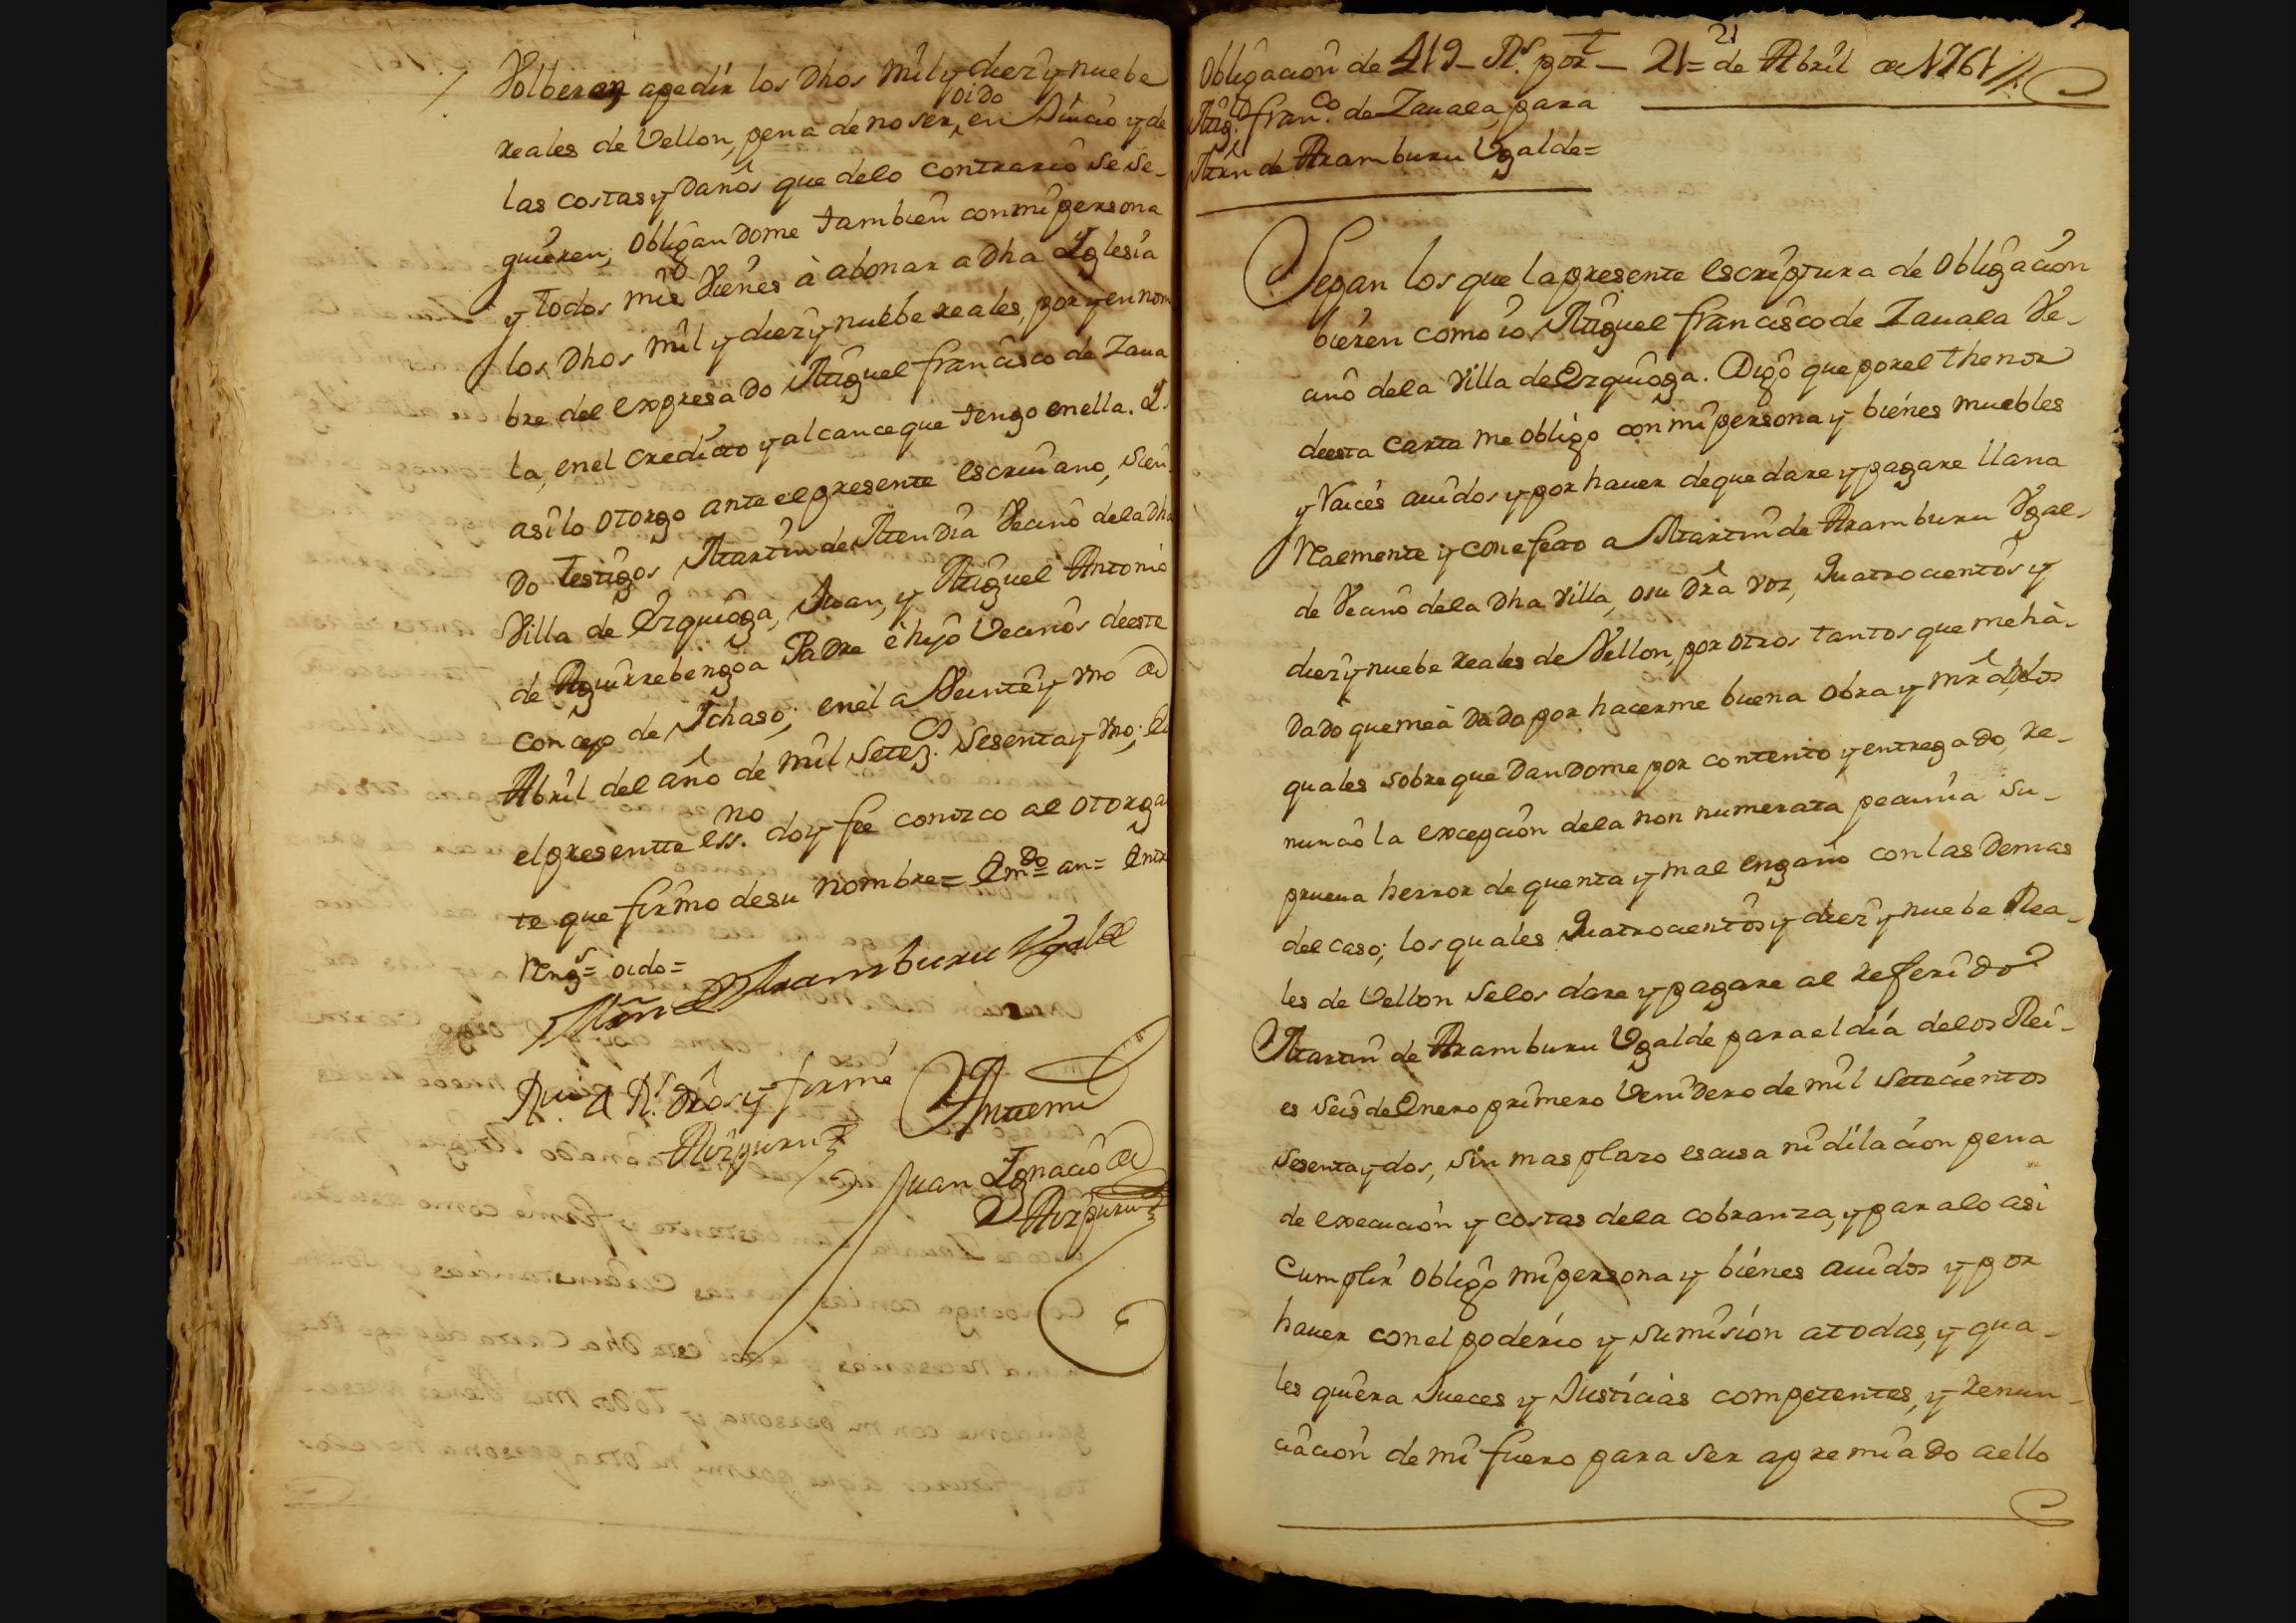 Volberan apedir los Dhos mil y diez y nuebe
reales de Vellon, pena de no ser oido en Juicio y de
las costas y daños que delo contrario se se-
guieren; obligandome tambien con mi persona
y todos mis Vienes à abonar a Dha Yglesia
los Dhos mil y diez y nuebe reales, por y en nom
bre del expresado Miguel francisco de Zaua
la, en el credito y alcance que tengo en ella. Y
asilo otorgo ante el presente escriuano, sien
do testigos Martin de Mendia Vecino dela Dha
Villa de Ezquioga, Juan, y Miguel Antonio
de Aguirrebengoa Padre è hijo Vecinos deeste
concejo de Ychaso; en el a Veinte y vno de
Abril del año de mil Setezos. Sesenta y vno; e
el presentte essno. doy fee conozco al otorgan
te que firmo de su nombre= Emdo= an= Entre
Rengs= oido=
Mrn de Aramburu Vgalde
Antemi
Rui A Rs. dros y firmé
Aizpuru
Juan Ygnacio de
Aizpuru
Obligacion de 419_ Rs. por t_ 21= de Abril de 1761
21
Migl. franco. de Zauala, para
Mrn de Aramburu Vgalde=
Sepan los que la presente escriptura de obligacion
bieren como io Miguel francisco de Zauala Ve-
cino dela Villa de Ezquioga. Digo que por el thenor
deesta carta me obligo con mi persona y bienes muebles
y Raices auidos y por hauer de que dare y pagare llana
Realmente y con efecto a Martin de Aramburu Vgal-
de Vecino dela Dha Villa, osu Dra voz, Quatrocientos y
diez y nuebe reales de Vellon, por otros tantos que me hà-
dado que meà dado por hacerme buena obra y mrd, delos
quales sobre que dandome por contento y entregado, re-
nuncio la excepcion dela non numerata pecunia su-
prueua herror de quenta y mal engaño con las demas
del caso; los quales Quatrocientos y diez y nuebe Rea-
les de Vellon selos dare y pagare al referido
Martin de Aramburu Vgalde para el dia delos Rei-
es seis de Enero primero Venidero de mil Settecientos
sesenta y dos, sin mas plazo escusa ni dilacion pena
de execucion y costas dela cobranza, y para lo asi
Cumplir obligo mi persona y bienes auidos y por
hauer con el poderio y sumision a todas, y qua-
les quiera Jueces y Justicias competentes, y renun-
ciacion de mi fuero para ser apremiado aello